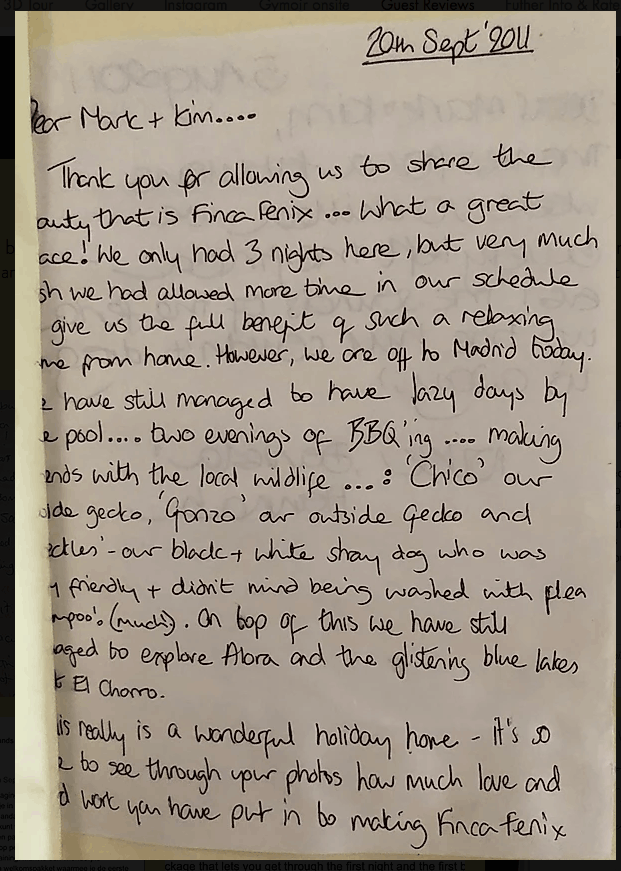 3D Tour Gallery Instagram Guest Reviews
20th Sept '2011
Dear Mark + Kim....
Thank you for allowing us to share the
auty that is Finca Fenix ... What a great
ace! We only had 3 nights here, but very much
sh we had allowed more time in our schedule
give us the full benefit of such a relaxing
me from home. However, we are off to Madrid today.
e have still managed to have lazy days by
e pool.... two evenings of BBQ'ing .... making
ends with the local wildlife ... : 'Chico' our
ide gecko, 'Gonzo' our outside gecko and
eckles' - our black + white stray dog who was
y friendly + didn't mind being washed with flea
mpoo! (much!). On top of this we have still
aged to explore Alora and the glistening blue lakes
t El Chorro.
is really is a wonderful holiday home - it's so
e to see through your photos how much love and
d work you have put in to making Finca Fenix
ckage that lets you get through the first night and the first b